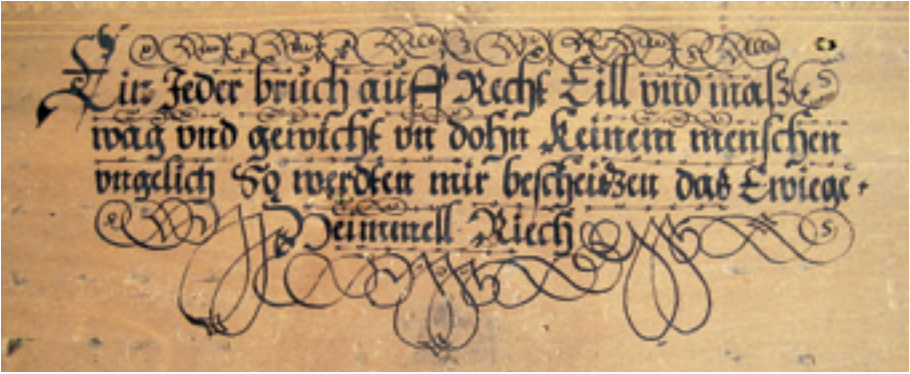 Ein Jeder bruch auff Recht Eill vnd maß
wag vnd gewicht vn dohn Keinem menschen
vngelich So werdten mir bescheidzen das Ewiege
Heimmell Riech